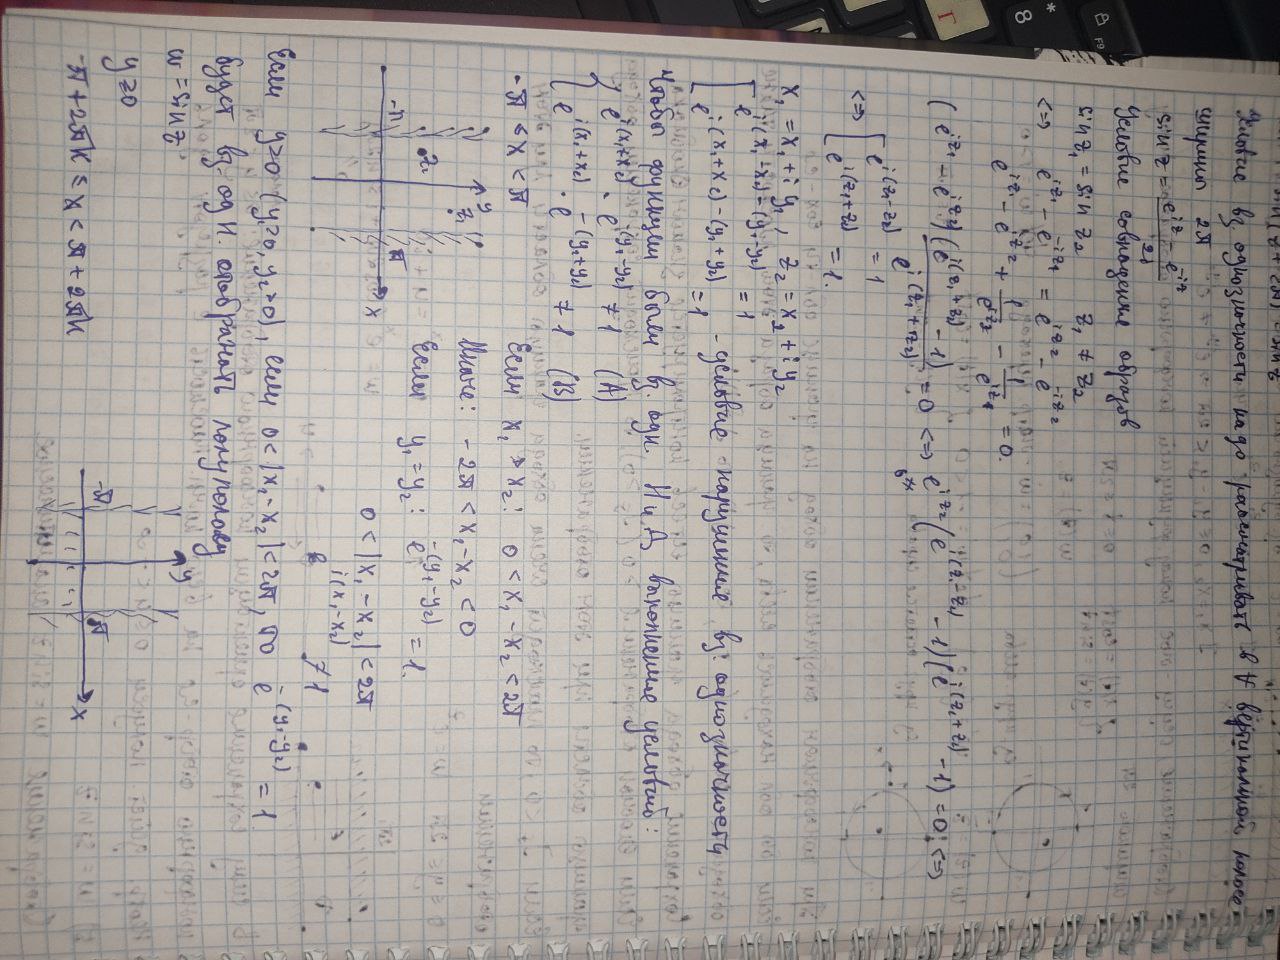 взаимно однозначности надо рассматривать в ∀ вертикальной полосе
ширины 2π
sin z = (e^{iz} - e^{-iz}) / 2i
Условие совпадения образов
sin z₁ = sin z₂ z₁ ≠ z₂
<=> e^{iz₁} - e^{-iz₁} = e^{iz₂} - e^{-iz₂}
e^{iz₁} - e^{iz₂} + 1/e^{iz₂} - 1/e^{iz₁} = 0.
(e^{iz₁} - e^{iz₂})(e^{i(z₁+z₂)} - 1) / e^{i(z₁+z₂)} = 0 <=> e^{iz₂}(e^{i(z₁-z₂)} - 1)(e^{i(z₁+z₂)} - 1) = 0 <=>
<=> [ e^{i(z₁-z₂)} = 1
e^{i(z₁+z₂)} = 1.
z₁ = x₁ + iy₁, z₂ = x₂ + iy₂
[ e^{i(x₁-x₂)-(y₁-y₂)} = 1
e^{i(x₁+x₂)-(y₁+y₂)} = 1 - условие нарушение вз. однозначности
Чтобы функции были вз. одн. Н и Д выполнение условий:
{ e^{i(x₁-x₂)} · e^{-(y₁-y₂)} ≠ 1 (A)
e^{i(x₁+x₂)} · e^{-(y₁+y₂)} ≠ 1 (B)
-π < x < π Если x₁ > x₂: 0 < x₁ - x₂ < 2π
Иначе: -2π < x₁ - x₂ < 0
Если y₁ = y₂: e^{-(y₁-y₂)} = 1.
0 < |x₁ - x₂| < 2π
e^{i(x₁-x₂)} ≠ 1
y
-π z₂ z₁ π x
Если y>0 (y₁>0, y₂>0), если 0 < |x₁ - x₂| < 2π, то e^{-(y₁-y₂)} = 1
будет вз. одн. отображать полуполосу
w = sin z
y>0
-π + 2πk < x < π + 2πk
y
-π π x